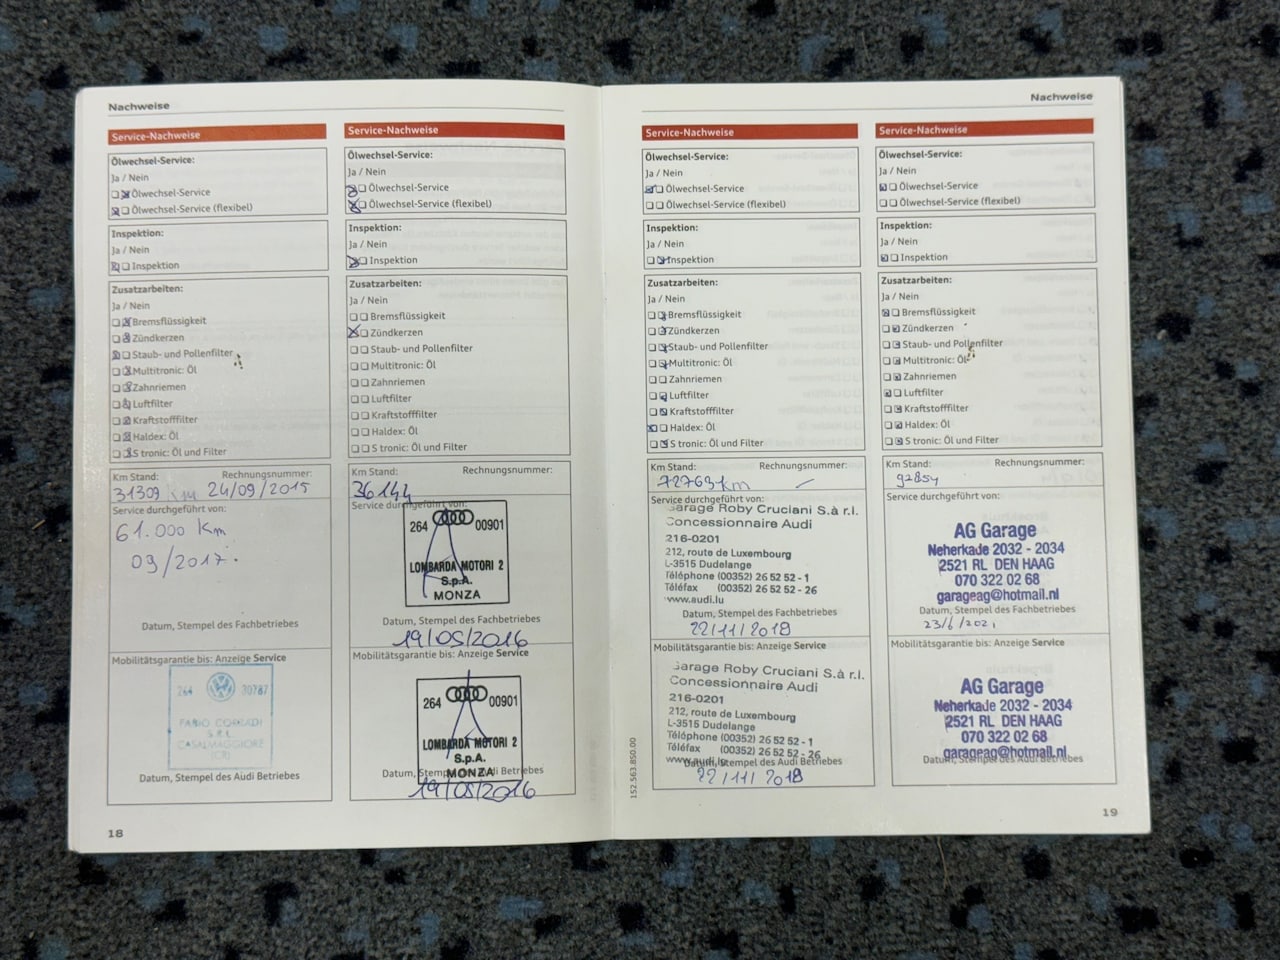 Nachweise
Service-Nachweise
Ölwechsel-Service:
Ja / Nein
Ölwechsel-Service
Ölwechsel-Service (flexibel)
Inspektion:
Ja / Nein
Inspektion
Zusatzarbeiten:
Ja / Nein
Bremsflüssigkeit
Zündkerzen
Staub- und Pollenfilter
Multitronic: Öl
Zahnriemen
Luftfilter
Kraftstofffilter
Haldex: Öl
S tronic: Öl und Filter
Km Stand: Rechnungsnummer:
31309 km 24/09/2015
Service durchgeführt von:
61.000 Km
09/2017.
Datum, Stempel des Fachbetriebes
Mobilitätsgarantie bis: Anzeige Service
264 30787
FABIO CORRADI
S.R.L.
CASALMAGGIORE
(CR)
Datum, Stempel des Audi Betriebes
18
Service-Nachweise
Ölwechsel-Service:
Ja / Nein
Ölwechsel-Service
Ölwechsel-Service (flexibel)
Inspektion:
Ja / Nein
Inspektion
Zusatzarbeiten:
Ja / Nein
Bremsflüssigkeit
Zündkerzen
Staub- und Pollenfilter
Multitronic: Öl
Zahnriemen
Luftfilter
Kraftstofffilter
Haldex: Öl
S tronic: Öl und Filter
Km Stand: Rechnungsnummer:
36144
Service durchgeführt von:
264 00901
LOMBARDA MOTORI 2
S.p.A.
MONZA
Datum, Stempel des Fachbetriebes
19/05/2016
Mobilitätsgarantie bis: Anzeige Service
264 00901
LOMBARDA MOTORI 2
S.p.A.
MONZA
Datum, Stempel des Audi Betriebes
19/05/2016
Nachweise
Service-Nachweise
Ölwechsel-Service:
Ja / Nein
Ölwechsel-Service
Ölwechsel-Service (flexibel)
Inspektion:
Ja / Nein
Inspektion
Zusatzarbeiten:
Ja / Nein
Bremsflüssigkeit
Zündkerzen
Staub- und Pollenfilter
Multitronic: Öl
Zahnriemen
Luftfilter
Kraftstofffilter
Haldex: Öl
S tronic: Öl und Filter
Km Stand: Rechnungsnummer:
72763 km
Service durchgeführt von:
Garage Roby Cruciani S.à r.l.
Concessionnaire Audi
216-0201
212, route de Luxembourg
L-3515 Dudelange
Téléphone (00352) 26 52 52 - 1
Téléfax (00352) 26 52 52 - 26
www.audi.lu
Datum, Stempel des Fachbetriebes
22/11/2018
Mobilitätsgarantie bis: Anzeige Service
Garage Roby Cruciani S.à r.l.
Concessionnaire Audi
216-0201
212, route de Luxembourg
L-3515 Dudelange
Téléphone (00352) 26 52 52 - 1
Téléfax (00352) 26 52 52 - 26
www.audi.lu
Datum, Stempel des Audi Betriebes
22/11/2018
152.563.850.00
Service-Nachweise
Ölwechsel-Service:
Ja / Nein
Ölwechsel-Service
Ölwechsel-Service (flexibel)
Inspektion:
Ja / Nein
Inspektion
Zusatzarbeiten:
Ja / Nein
Bremsflüssigkeit
Zündkerzen
Staub- und Pollenfilter
Multitronic: Öl
Zahnriemen
Luftfilter
Kraftstofffilter
Haldex: Öl
S tronic: Öl und Filter
Km Stand: Rechnungsnummer:
92854
Service durchgeführt von:
AG Garage
Neherkade 2032 - 2034
2521 RL DEN HAAG
070 322 02 68
garageag@hotmail.nl
Datum, Stempel des Fachbetriebes
23/6/2021
Mobilitätsgarantie bis: Anzeige Service
AG Garage
Neherkade 2032 - 2034
2521 RL DEN HAAG
070 322 02 68
garageag@hotmail.nl
Datum, Stempel des Audi Betriebes
19